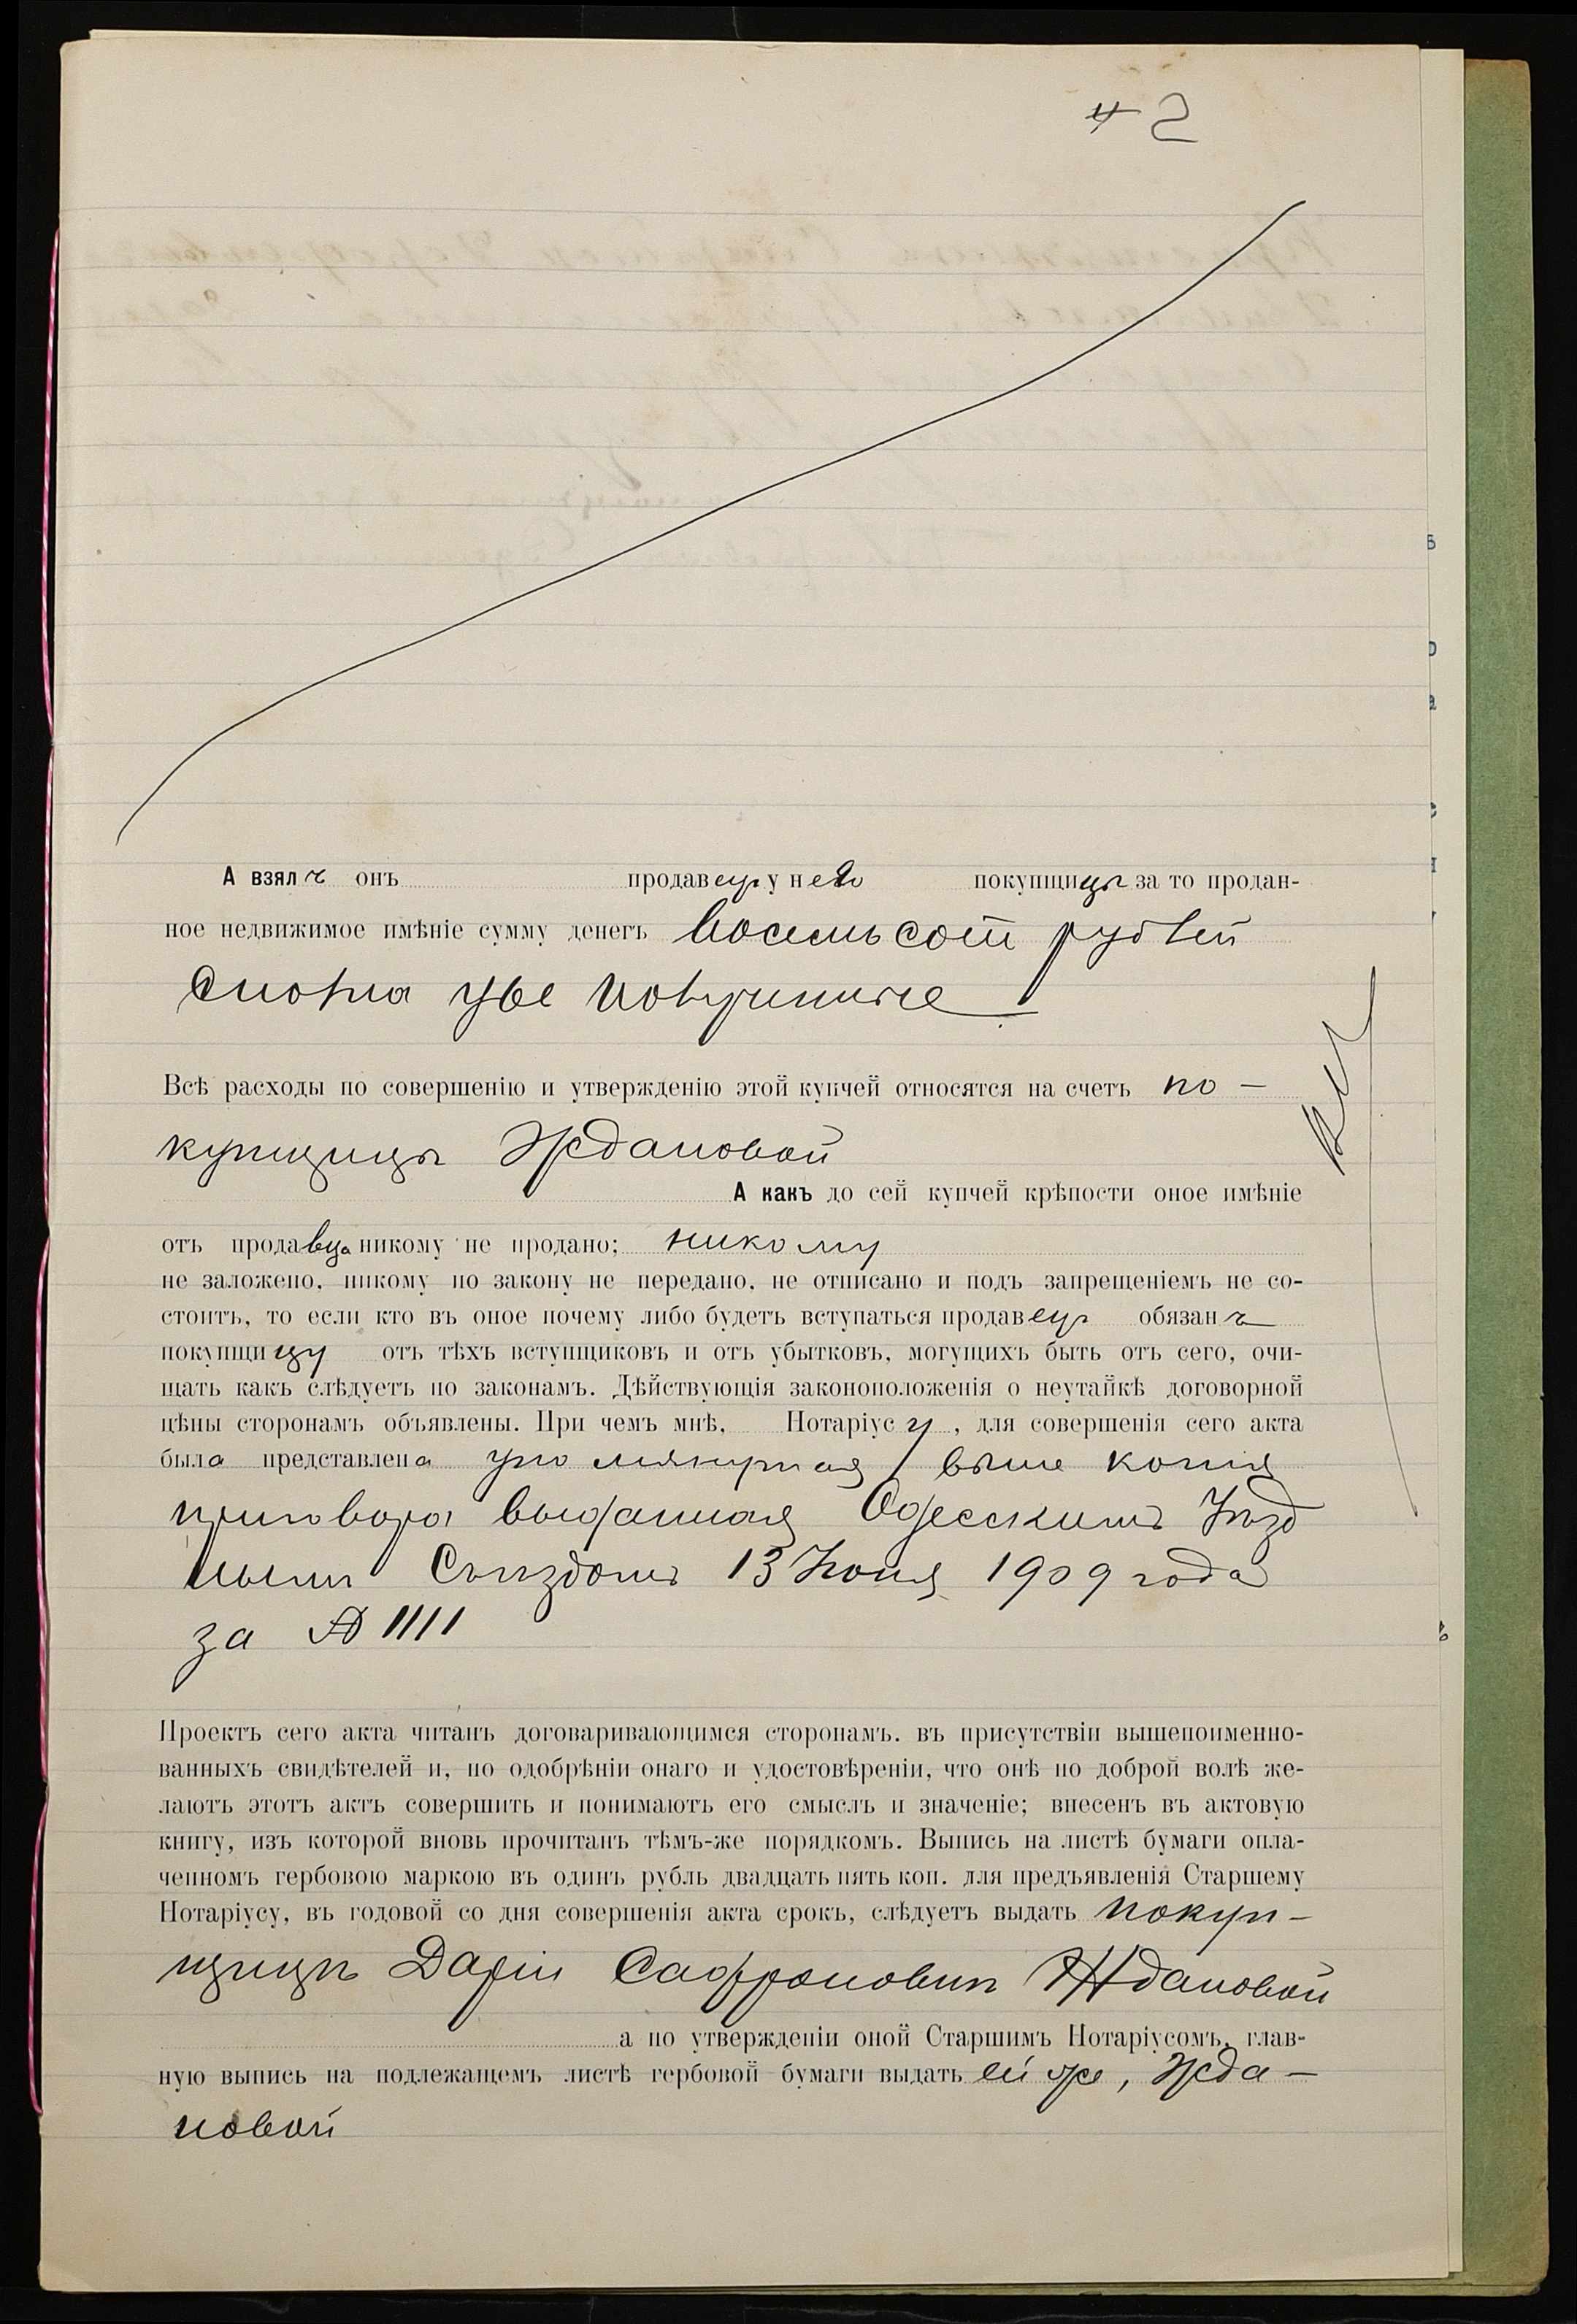 2
А взялъ онъ продавецъ у нея покупщицы за то продан-
ное недвижимое имѣніе сумму денегъ восемьсотъ рублей
сполна уже полученные
Всѣ расходы по совершенію и утвержденію этой купчей относятся на счетъ по-
купщицы Ждановой
А какъ до сей купчей крѣпости оное имѣніе
отъ продавца никому не продано; никому
не заложено, никому по закону не передано, не отписано и подъ запрещеніемъ не со-
стоитъ, то если кто въ оное почему либо будетъ вступаться продавецъ обязанъ
покупщицу отъ тѣхъ вступщиковъ и отъ убытковъ, могущихъ быть отъ сего, очи-
щать какъ слѣдуетъ по законамъ. Дѣйствующія законоположенія о неутайкѣ договорной
цѣны сторонамъ объявлены. При чемъ мнѣ, Нотаріусу, для совершенія сего акта
была представлена упомянутая выше копія
приговора выданная Одесскимъ Уѣзд
нымъ Съѣздомъ 13 Іюня 1909 года
за № 1111
Проектъ сего акта читанъ договаривающимся сторонамъ. въ присутствіи вышепоименно-
ванныхъ свидѣтелей и, по одобрѣніи онаго и удостовѣреніи, что онѣ по доброй волѣ же-
лаютъ этотъ актъ совершить и понимаютъ его смыслъ и значеніе; внесенъ въ актовую
книгу, изъ которой вновь прочитанъ тѣмъ-же порядкомъ. Выпись на листѣ бумаги опла-
ченномъ гербовою маркою въ одинъ рубль двадцать пять коп. для предъявленія Старшему
Нотаріусу, въ годовой со дня совершенія акта срокъ, слѣдуетъ выдать покуп-
щицѣ Даріи Сафроновнѣ Ждановой
а по утвержденіи оной Старшимъ Нотаріусомъ, глав-
ную выпись на подлежащемъ листѣ гербовой бумаги выдать ей же, Жда-
новой